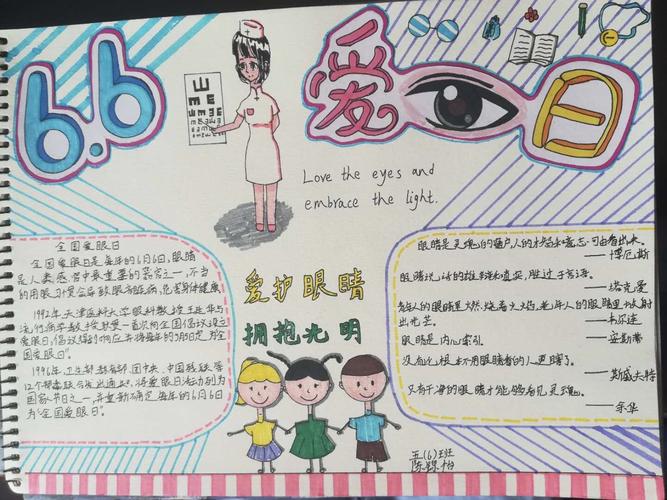 6.6
爱 日
Love the eyes and
embrace the light.
爱护眼睛
拥抱光明
全国爱眼日
全国爱眼日是每年的6月6日,眼睛
是人类感官中最重要的器官之一,不当
的用眼习惯会导致眼方疾病,危害身体健康
1992年,天津医科大学眼科教授王延华与
流行病学教授耿贯一首次向全国倡议设立
爱眼日,倡议得到响应并将每年的5月5日定为“全
国爱眼日”。
1996年,卫生部、教育部、团中央、中国残联等
12个部委联合发出通知,将爱眼日活动列为
国家节日之一,并重新确定每年的6月6日
为“全国爱眼日”。
眼睛是灵魂的窗户,人的才智和意志,可由看出来。
——博厄斯
眼睛说话的雄辩和真实,胜过于言语。
——塔克曼
年人的眼睛里燃烧着火焰,老年人的眼睛里放射
出光芒。
眼睛是内心索引
没有比根本不用眼睛看的人更瞎了。
——斯威夫特
又有干净的眼睛才能够看见灵魂。
——余华
五(6)班